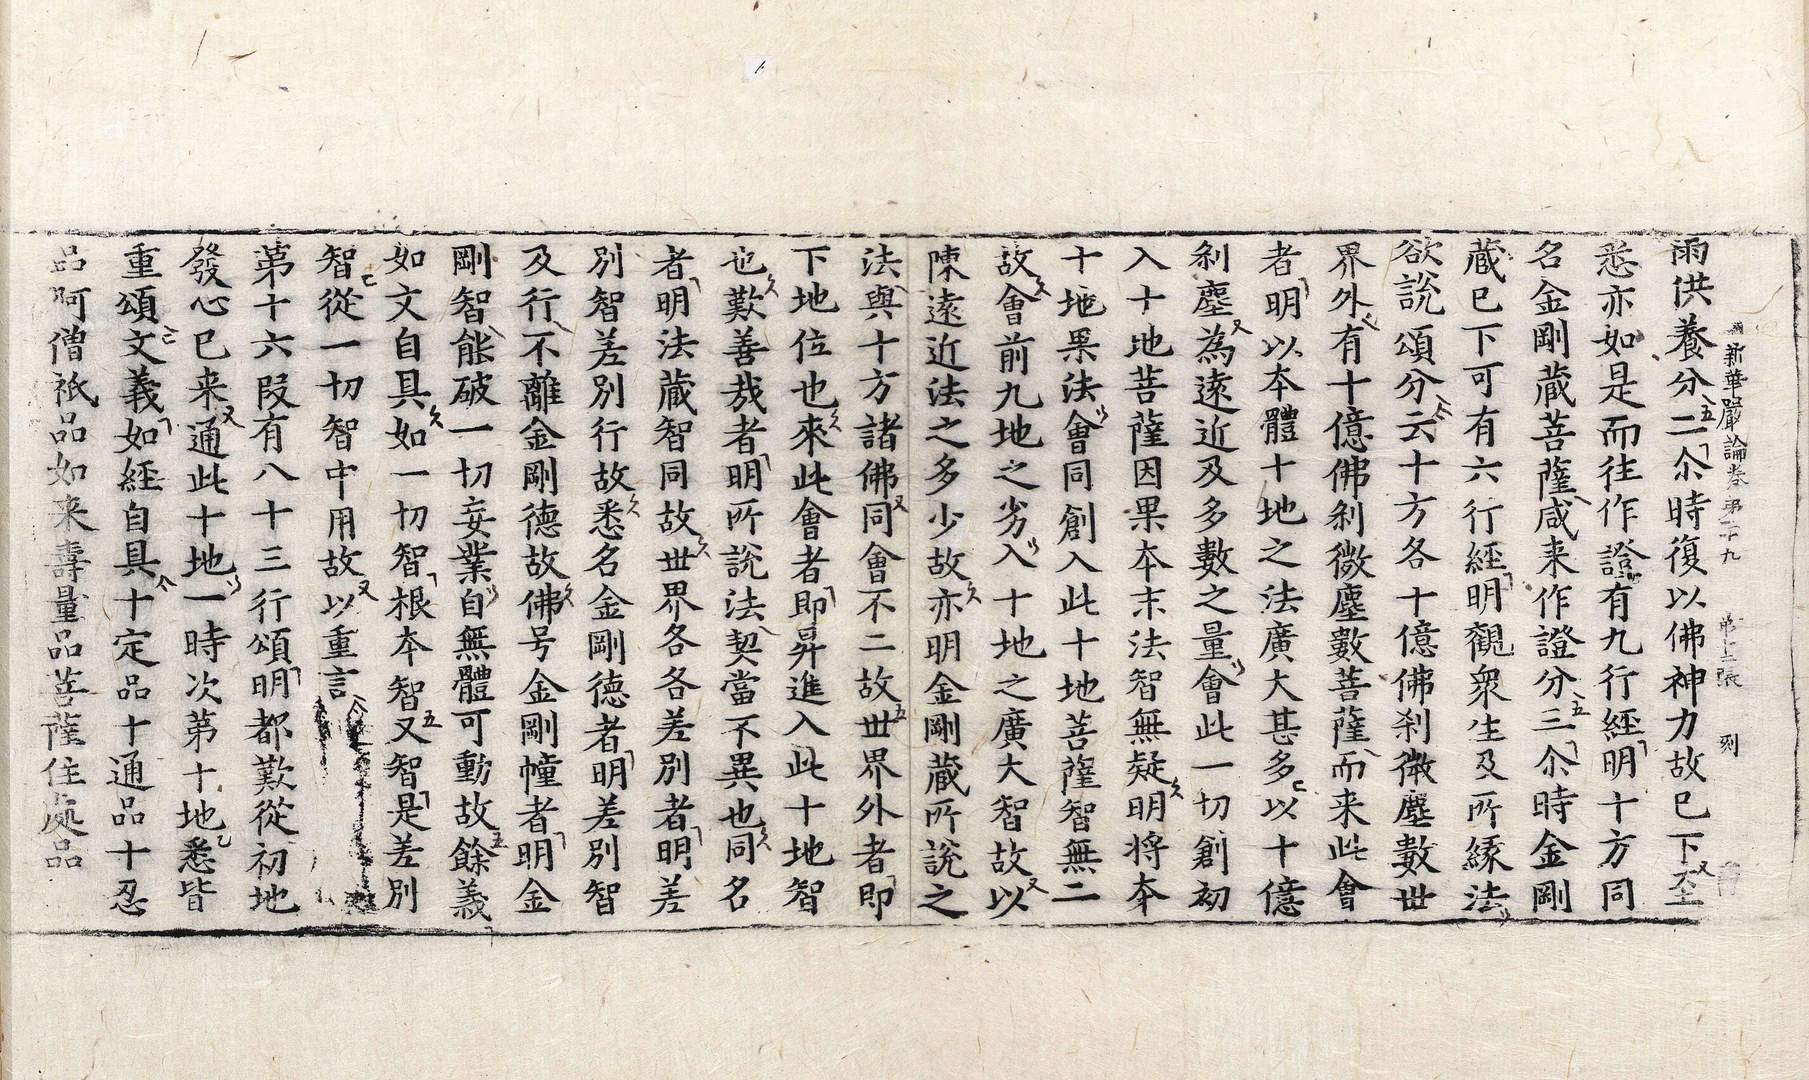 新華嚴論卷第二十九 第十二張 刻
雨供養分二尒時復以佛神力故已下至
悉亦如是而往作證有九行經明十方同
名金剛蔵菩薩咸来作證分三尒時金剛
蔵已下可有六行經明觀衆生及所縁法
欲說頌分云十方各十億佛刹微塵數世
界外有十億佛刹微塵數菩薩而来此會
者明以本體十地之法廣大甚多以十億
刹塵為遠近及多數之量會此一切創初
入十地菩薩因果本末法智無疑明將本
十地果法會同創入此十地菩薩智無二
故會前九地之劣入十地之廣大智故以
陳遠近法之多少故亦明金剛蔵所說之
法與十方諸佛同會不二故世界外者即
下地位也來此會者即昇進入此十地智
也歎善哉者明所說法契當不異也同名
者明法蔵智同故世界各各差別者明差
別智差別行故悉名金剛德者明差別智
及行不離金剛德故佛号金剛幢者明金
剛智能破一切妄業自無體可動故餘義
如文自具如一切智根本智又智是差別
智從一切智中用故以重言
第十六段有八十三行頌明都歎從初地
發心已来通此十地一時次第十地悉皆
重頌文義如經自具十定品十通品十忍
品阿僧祇品如来壽量品菩薩住處品